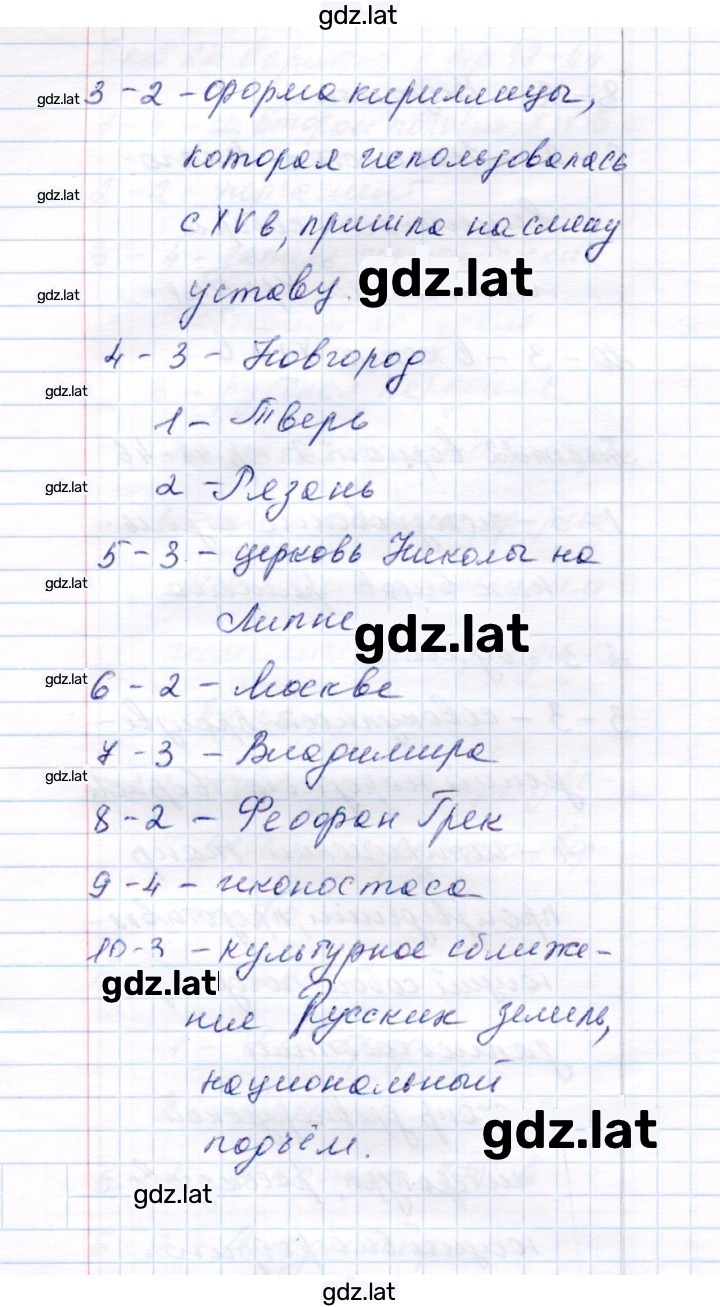 gdz.lat
gdz.lat 3 - 2 - форма кириллицы,
которая использовалась
gdz.lat
с XV в, пришла на смену
gdz.lat уставу. gdz.lat
4 - 3 - Новгород
gdz.lat
1 - Тверь
gdz.lat 2 - Рязань
5 - 3 - церковь Николы на
gdz.lat
Липне gdz.lat
gdz.lat 6 - 2 - Москве
7 - 3 - Владимира
gdz.lat
8 - 2 - Феофан Грек
9 - 4 - иконостаса
10 - 3 - культурное сближе-
gdz.lat
ние Русских земель,
национальный
подъём. gdz.lat
gdz.lat
gdz.lat